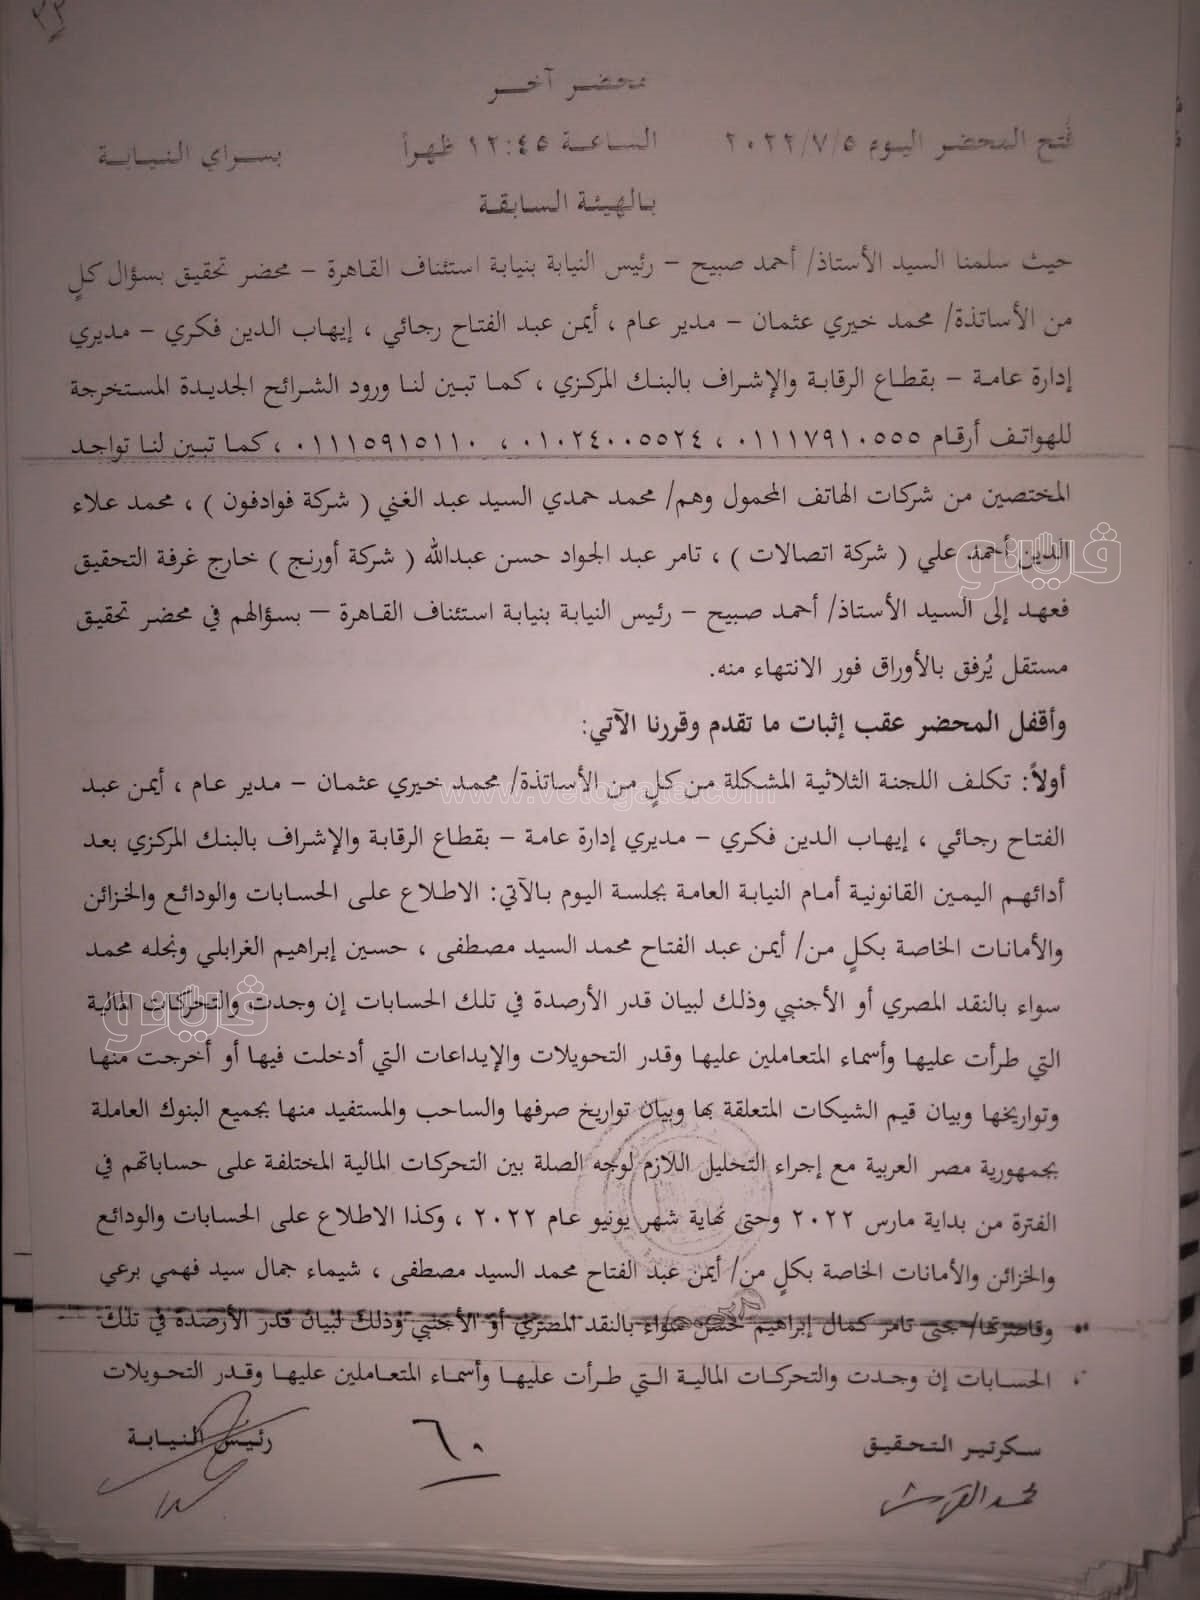 محضر آخر
فتح المحضر اليوم ٢٠٢٢/٧/٥ الساعة ١٢:٤٥ ظهراً بسراي النيابة
بالهيئة السابقة
حيث سلمنا السيد الأستاذ/ أحمد صبيح – رئيس النيابة بنيابة استئناف القاهرة – محضر تحقيق بسؤال كلٍ
من الأساتذة/ محمد خيري عثمان – مدير عام ، أيمن عبد الفتاح رجائي ، إيهاب الدين فكري – مديري
إدارة عامة – بقطاع الرقابة والإشراف بالبنك المركزي ، كما تبين لنا ورود الشرائح الجديدة المستخرجة
للهواتف أرقام ٠١١١٧٩١٠٥٥٥ ، ٠١٠٢٤٠٠٥٥٢٤ ، ٠١١١٥٩١٥١١٠ ، كما تبين لنا تواجد
المختصين من شركات الهاتف المحمول وهم/ محمد حمدي السيد عبد الغني ( شركة فوادفون ) ، محمد علاء
الدين أحمد علي ( شركة اتصالات ) ، تامر عبد الجواد حسن عبدالله ( شركة أورنج ) خارج غرفة التحقيق
فعهد إلى السيد الأستاذ/ أحمد صبيح – رئيس النيابة بنيابة استئناف القاهرة – بسؤالهم في محضر تحقيق
مستقل يُرفق بالأوراق فور الانتهاء منه.
وأقفل المحضر عقب إثبات ما تقدم وقررنا الآتي:
أولاً: تكلف اللجنة الثلاثية المشكلة من كلٍ من الأساتذة/ محمد خيري عثمان – مدير عام ، أيمن عبد
الفتاح رجائي ، إيهاب الدين فكري – مديري إدارة عامة – بقطاع الرقابة والإشراف بالبنك المركزي بعد
أدائهم اليمين القانونية أمام النيابة العامة بجلسة اليوم بالآتي: الاطلاع على الحسابات والودائع والخزائن
والأمانات الخاصة بكلٍ من/ أيمن عبد الفتاح محمد السيد مصطفى ، حسين إبراهيم الغرابلي ونجله محمد
سواء بالنقد المصري أو الأجنبي وذلك لبيان قدر الأرصدة في تلك الحسابات إن وجدت والتحركات المالية
التي طرأت عليها وأسماء المتعاملين عليها وقدر التحويلات والإيداعات التي أدخلت فيها أو أخرجت منها
وتواريخها وبيان قيم الشيكات المتعلقة بها وبيان تواريخ صرفها والساحب والمستفيد منها بجميع البنوك العاملة
بجمهورية مصر العربية مع إجراء التحليل اللازم لوجه الصلة بين التحركات المالية المختلفة على حساباتهم في
الفترة من بداية مارس ٢٠٢٢ وحتى نهاية شهر يونيو عام ٢٠٢٢ ، وكذا الاطلاع على الحسابات والودائع
والخزائن والأمانات الخاصة بكلٍ من/ أيمن عبد الفتاح محمد السيد مصطفى ، شيماء جمال سيد فهمي برعي
وقاصرتها/ جنى تامر كمال إبراهيم حسن سواء بالنقد المصري أو الأجنبي وذلك لبيان قدر الأرصدة في تلك
الحسابات إن وجدت والتحركات المالية التي طرأت عليها وأسماء المتعاملين عليها وقدر التحويلات
سكرتير التحقيق ٦٠ رئيس النيابة
www.vetogate.com
ڤيتو
ڤيتو